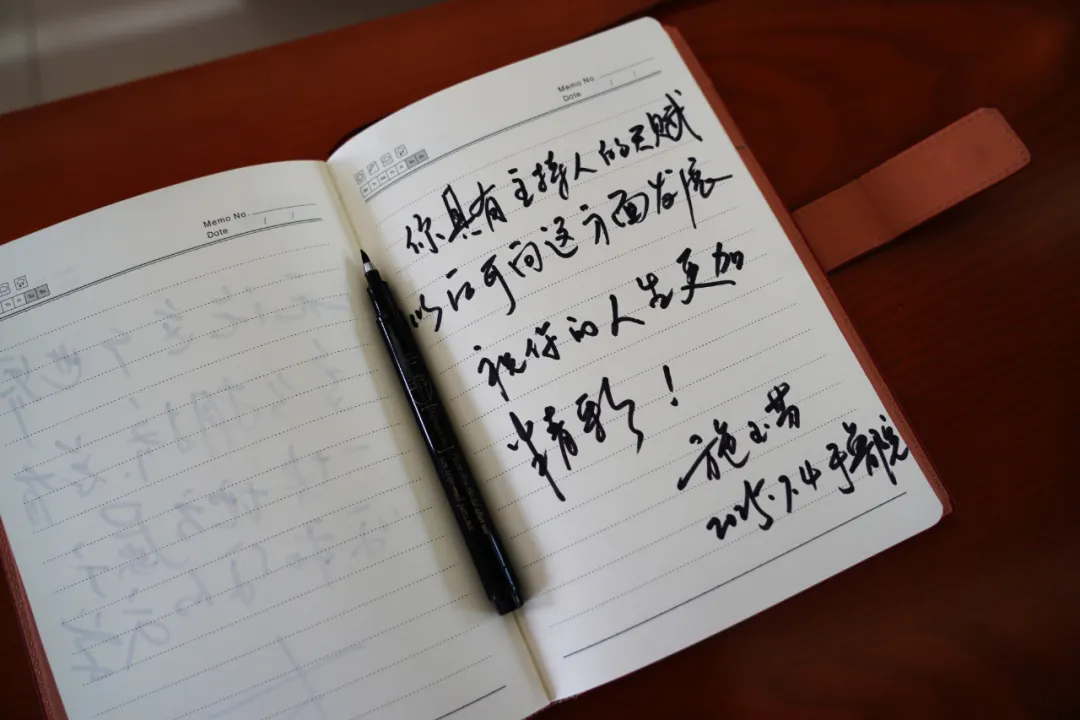 Memo No.
Date
Memo No.
Date
你具有主持人的天赋
以后可向这方面发展
祝你的人生更加
精彩！
施玉茜
2025.7.4于鲁院